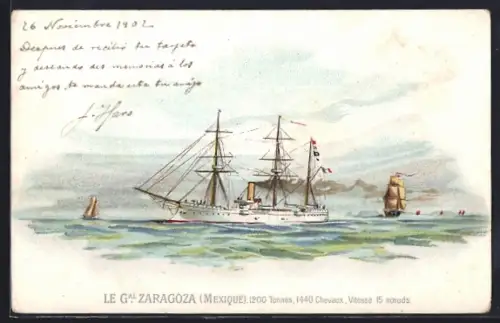 26 Noviembre 1902
Despues de recibió tu tarjeta
y deseando des memorias á los
amigos, te manda esta tu amigo
J. Haro
LE GAL ZARAGOZA (MEXIQUE), 1200 Tonnes, 1440 Chevaux, Vitesse 15 nœuds